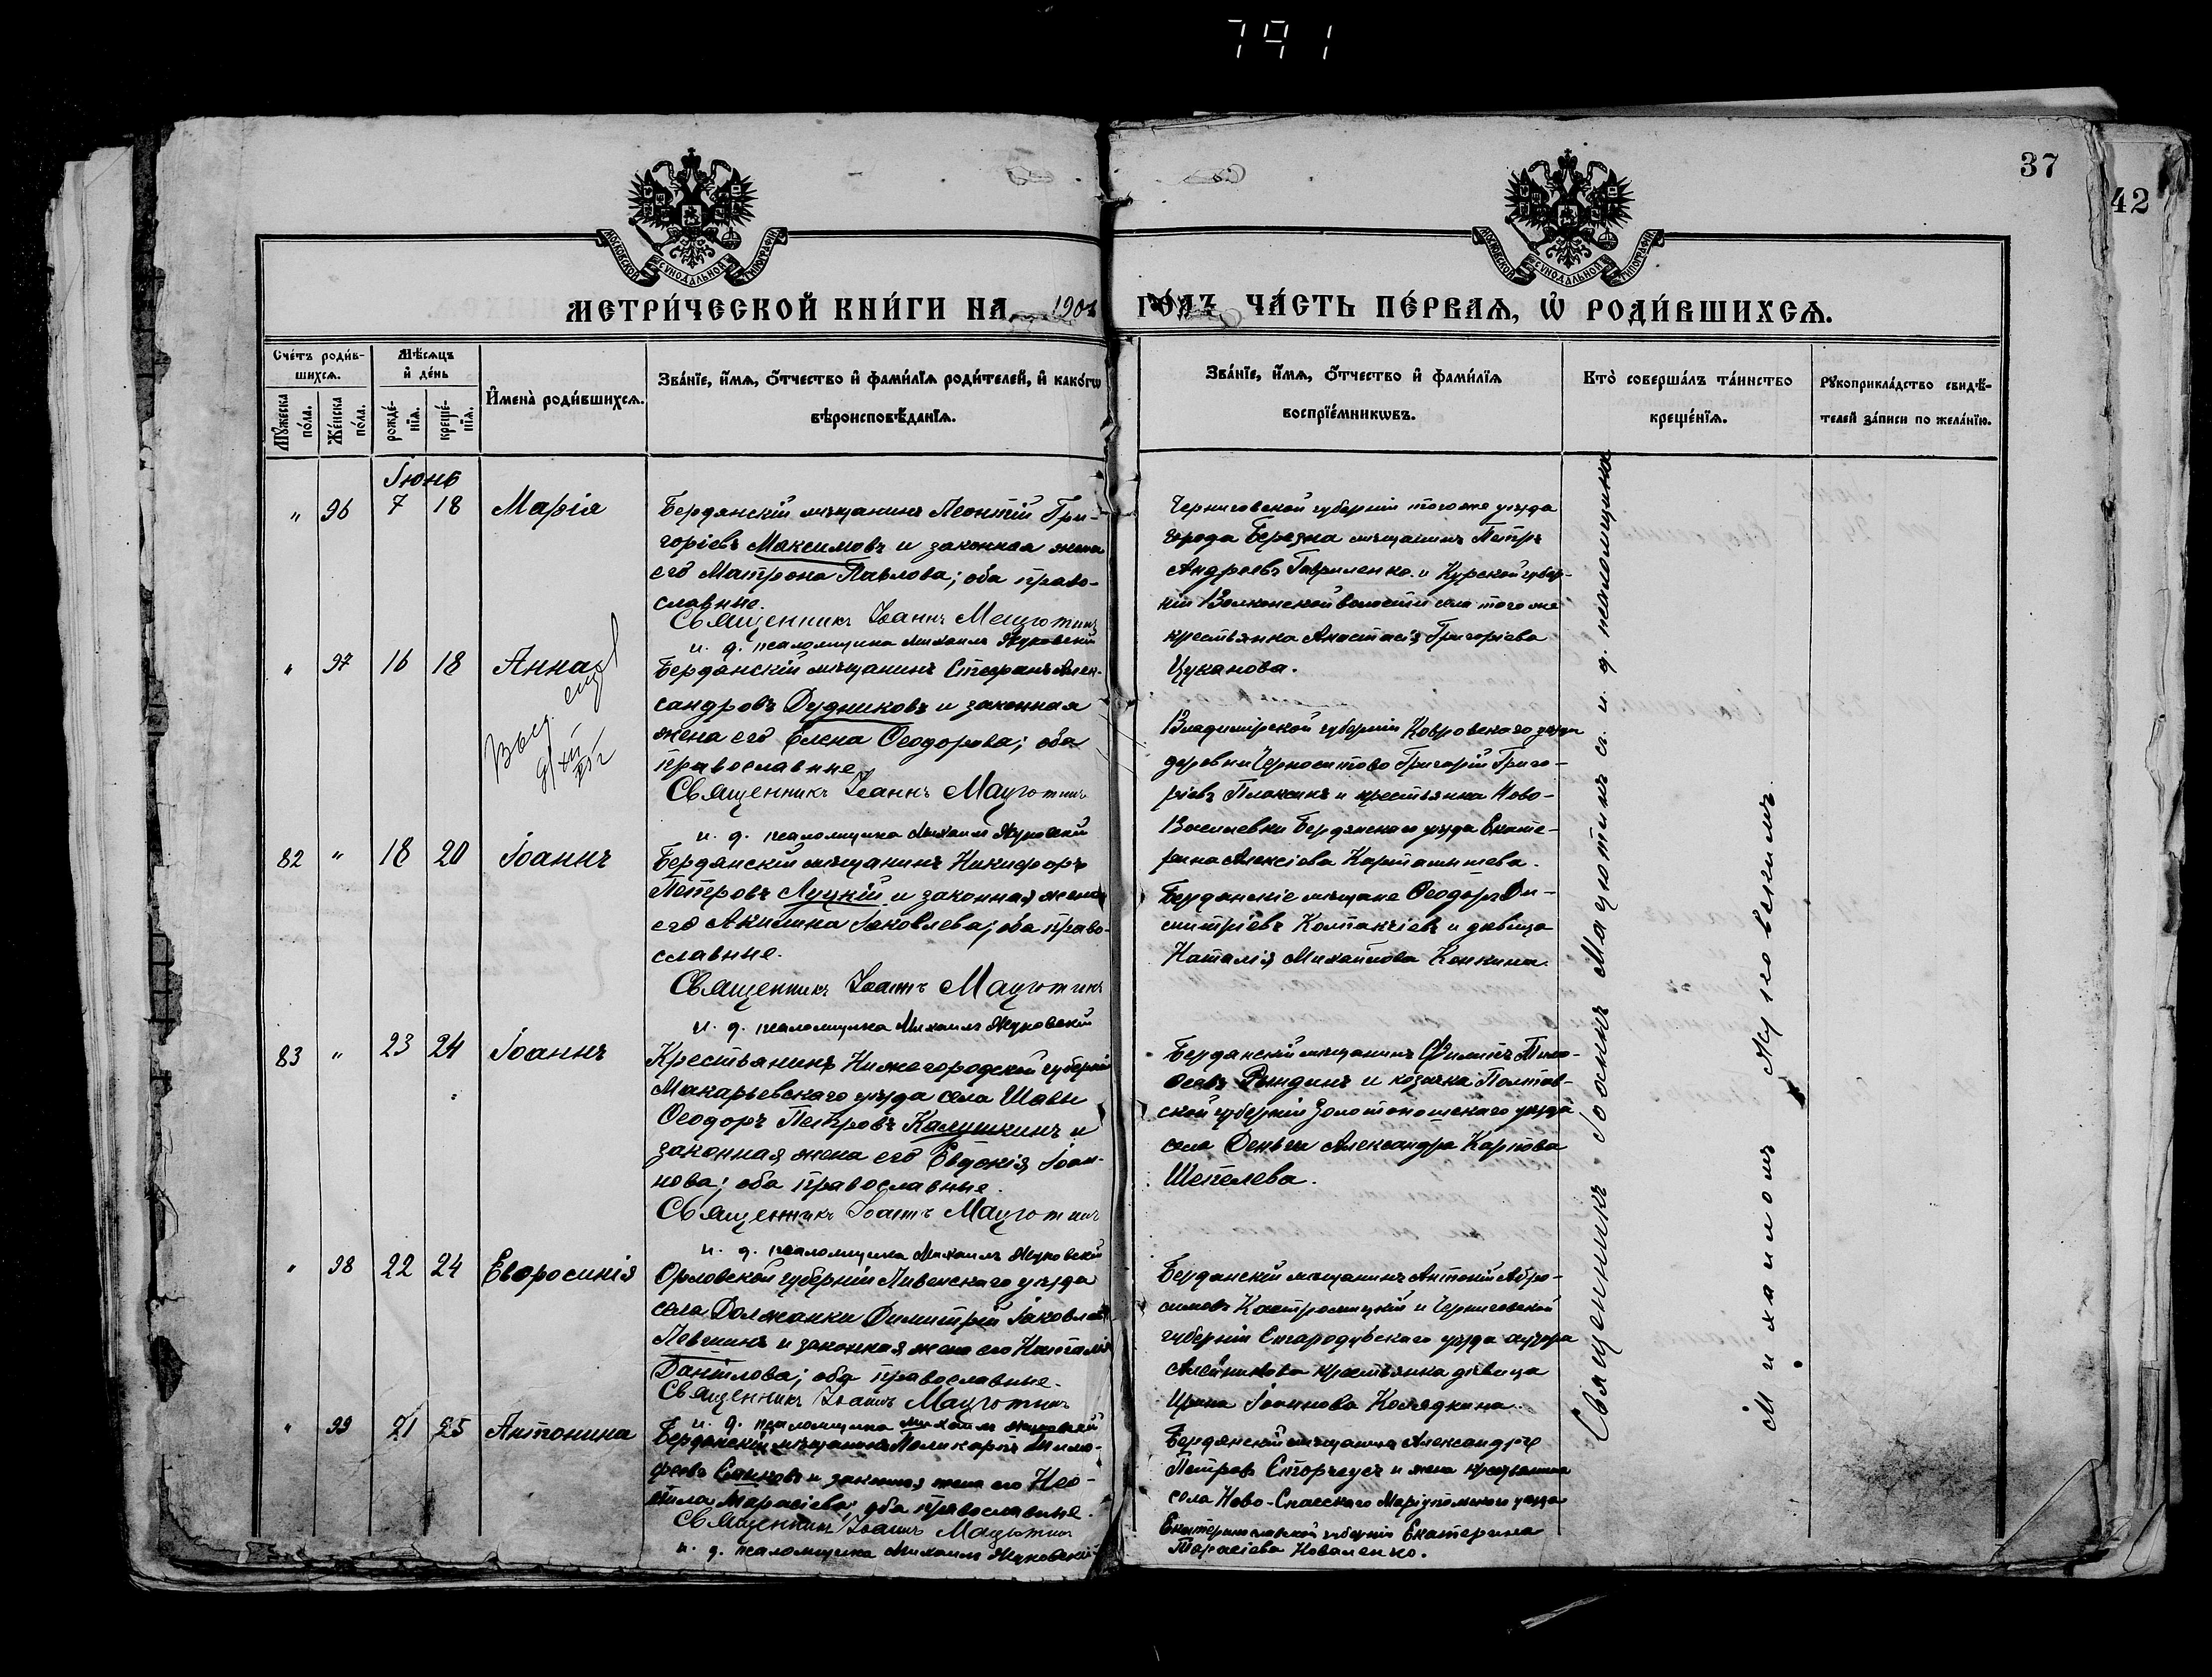 791
37
42
МОСКОВСКОЙ СѴНОДАЛЬНОЙ ТИПОГРАФІИ
МОСКОВСКОЙ СѴНОДАЛЬНОЙ ТИПОГРАФІИ
МЕТРИ́ЧЕСКОЙ КНИ́ГИ НА 190 ГО́ДЪ ЧА́СТЬ ПЕ́РВАЯ, Ѡ҆ РОДИ́ВШИХСЯ.
Сче́тъ роди́в-
шихся.
Мѣ́сяцъ
и҆ де́нь
И҆мена̀ роди́вшихся.
Зва́нїе, и҆́мя, ѻ҆́тчество и҆ фами́лїя роди́телей, и҆ како́гѡ
вѣроисповѣ́данїя.
Зва́нїе, и҆́мя, ѻ҆́тчество и҆ фами́лїя
воспрїе́мникѡвъ.
Кто̀ соверша́лъ та́инство
креще́нїя.
Рꙋкоприкла́дство свидѣ́-
телей за́писи по жела́нїю.
Мꙋ́жеска
по́ла.
Же́нска
по́ла.
рожде́-
нїя.
креще́-
нїя.
Іюнь
" 96 7 18 Марія
Бердянскій мѣщанинъ Леонтій Гри-
горіевъ Максимовъ и законная жена
его Матрона Павлова; оба право-
славные.
Священникъ Іоаннъ Мацютинъ
и. д. псаломщика Михаилъ Жуковскій
Черниговской губерніи того же уѣзда
города Березна мѣщанинъ Петръ
Андреевъ Гавриленко и Курской губер-
ніи Волконской волости села того же
крестьянка Анастасія Григоріева
Цуканова.
" 97 16 18 Анна
Бердянскій мѣщанинъ Стефанъ Алек-
сандровъ Дудниковъ и законная
жена его Елена Ѳеодорова; оба
православные
Священникъ Іоаннъ Мацютинъ
и. д. псаломщика Михаилъ Жуковскій
Владимірской губерніи Ковровскаго уѣзда
деревни Григорій Григо-
ріевъ Плаксинъ и крестьянка Ново-
Васильевки Бердянскаго уѣзда Екате-
рина Алексіева Карташышева.
82 " 18 20 Іоаннъ
Бердянскій мѣщанинъ Никифоръ
Петровъ Луцкій и законная жена
его Акилина Іаковлева; оба право-
славные.
Священникъ Іоаннъ Мацютинъ
и. д. псаломщика Михаилъ Жуковскій
Бердянскіе мѣщане Ѳеодоръ Ди-
митріевъ Колпакчіевъ и дѣвица
Наталія Михайлова Конкина.
83 " 23 24 Іоаннъ
Крестьянинъ Нижегородской губерніи
Макарьевскаго уѣзда села Шавы
Ѳеодоръ Петровъ Калушкинъ и
законная жена его Евдокія Іоан-
нова; оба православные.
Священникъ Іоаннъ Мацютинъ
и. д. псаломщика Михаилъ Жуковскій
Бердянскій мѣщанинъ Филиппъ Тимо-
ѳеевъ и козачка Полтав-
ской губерніи Золотоношскаго уѣзда
села Деньги Александра Карпова
Шепелева.
" 98 22 24 Евфросинія
Орловской губерніи Ливенскаго уѣзда
села Должанки Димитрій Іаковлевъ
Левшинъ и законная жена его Наталія
Даніилова; оба православные.
Священникъ Іоаннъ Мацютинъ
и. д. псаломщика Михаилъ Жуковскій
Бердянскій мѣщанинъ Антоній Абро-
симовъ и Черниговской
губерніи Стародубскаго уѣзда хутора
Алейникова крестьянка дѣвица
Ирина Іоаннова Колядкина.
" 99 21 25 Антонина
Бердянскій мѣщанинъ Поликарпъ Тимо-
ѳеевъ и законная жена его Нео-
нила Тарасіева; оба православные.
Священникъ Іоаннъ Мацютинъ
и. д. псаломщика Михаилъ Жуковскій
Бердянскій мѣщанинъ Александръ
Петровъ Сторчеусъ и жена крестьянина
села Ново-Спасскаго Маріупольскаго уѣзда
Екатеринославской губерніи Екатерина
Тарасіева Коваленко.
Священникъ Іоаннъ Мацютинъ съ и. д. псаломщика
Михаиломъ Жуковскимъ.